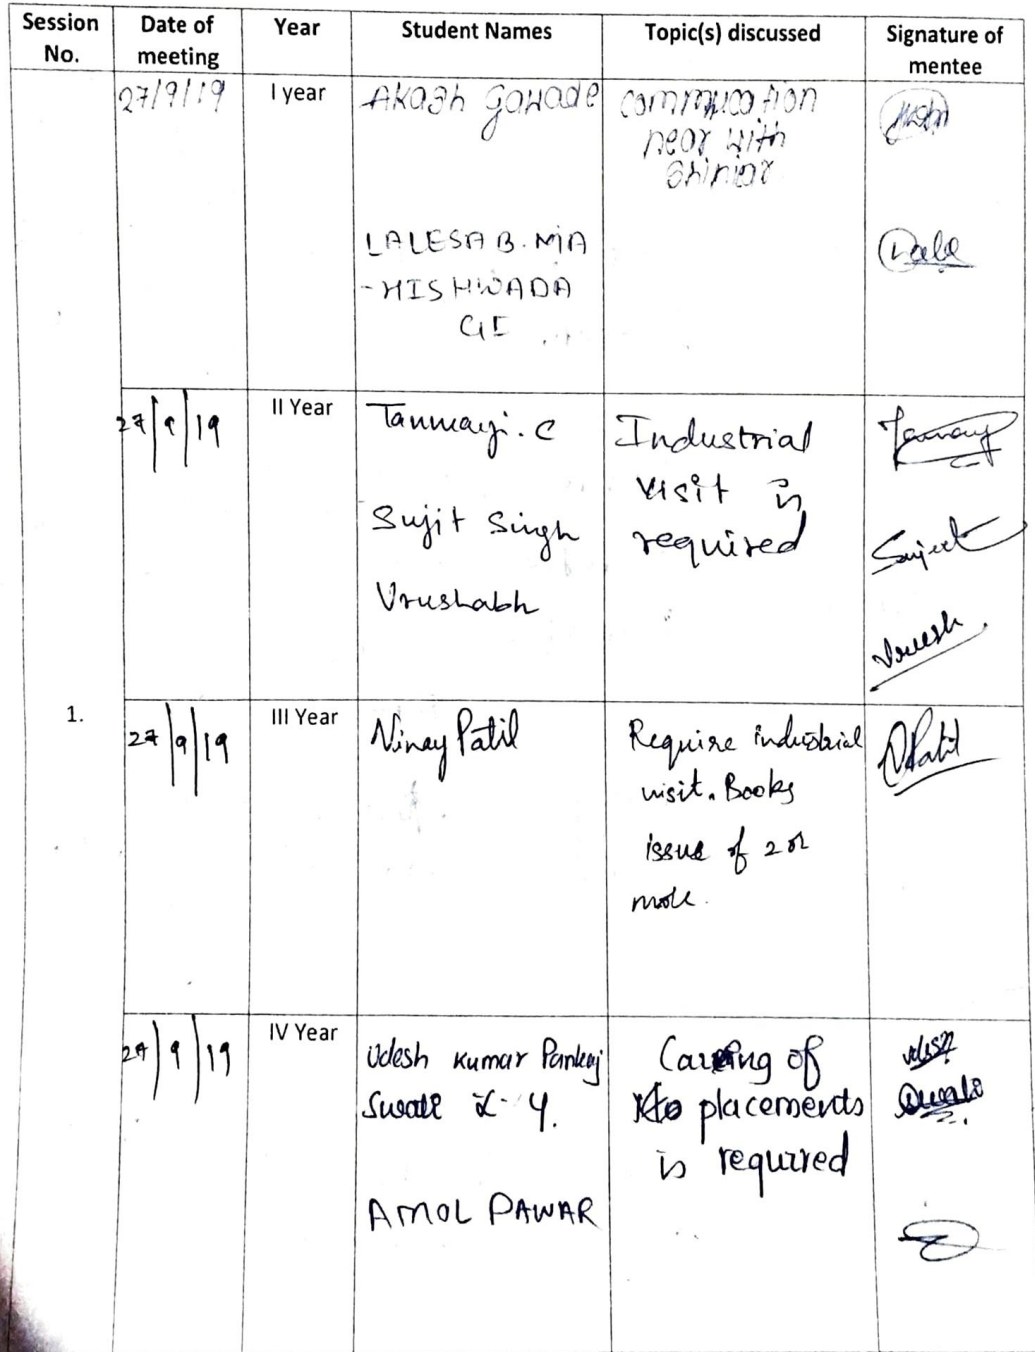 Session No.
Date of meeting
Year
Student Names
Topic(s) discussed
Signature of mentee
1.
27/9/19
I year
Akash gawade
LALESA B. MA
-HISHWADA
GI
commucation
near with
Shinior
27/9/19
II Year
Tanmayi. C
Sujit Singh
Vrushabh
Industrial
visit is
required
Sujeet
Vrush
27/9/19
III Year
Vinay Patil
Require industrial
visit. Books
issue of 2 or
more.
Patil
27/9/19
IV Year
Udesh Kumar Pankaj
AMOL PAWAR
of
placements
is required